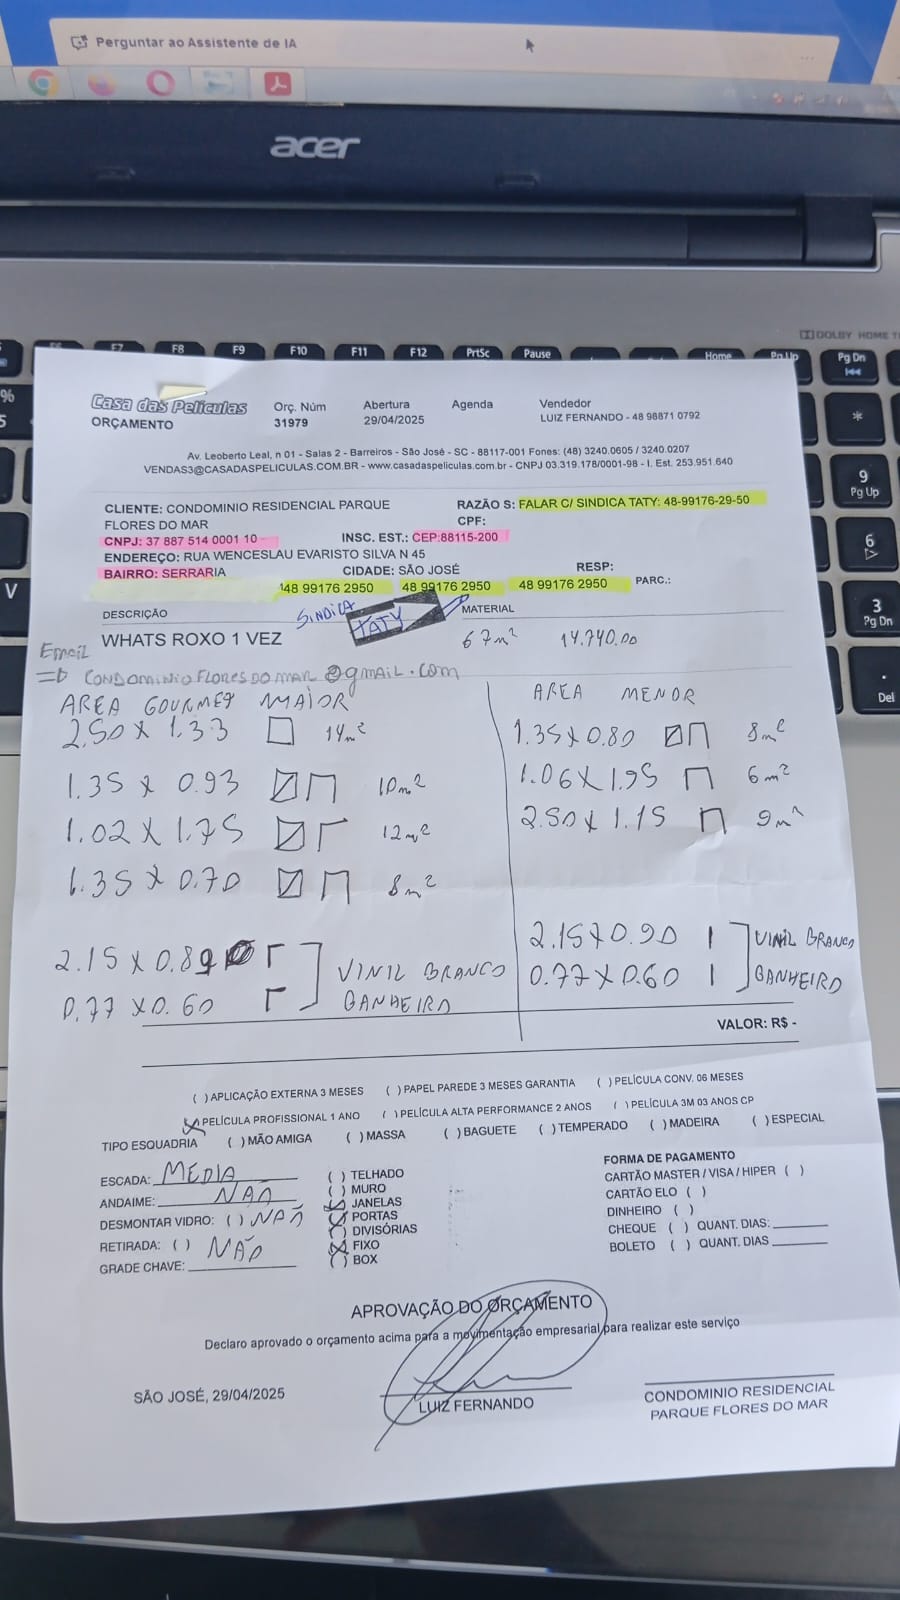 Perguntar ao Assistente de IA
acer
DOLBY HOME T
F7 F8 F9 F10 F11 F12 PrtSc Pause Home Pg Up Pg Dn
%
5
*
9
Pg Up
6
V
3
Pg Dn
.
Del
Casa das Películas
ORÇAMENTO
Orç. Núm
31979
Abertura
29/04/2025
Agenda
Vendedor
LUIZ FERNANDO - 48 98871 0792
Av. Leoberto Leal, n 01 - Salas 2 - Barreiros - São José - SC - 88117-001 Fones: (48) 3240.0605 / 3240.0207
VENDAS3@CASADASPELICULAS.COM.BR - www.casadaspeliculas.com.br - CNPJ 03.319.178/0001-98 - I. Est. 253.951.640
CLIENTE: CONDOMINIO RESIDENCIAL PARQUE
FLORES DO MAR
RAZÃO S: FALAR C/ SINDICA TATY: 48-99176-29-50
CPF:
CNPJ: 37 887 514 0001 10
INSC. EST.: CEP:88115-200
ENDEREÇO: RUA WENCESLAU EVARISTO SILVA N 45
BAIRRO: SERRARIA
CIDADE: SÃO JOSÉ
RESP:
48 99176 2950 48 99176 2950 48 99176 2950 PARC.:
DESCRIÇÃO
SINDICA TATY
MATERIAL
WHATS ROXO 1 VEZ
67m² 14.740.00
Email
=D CONDOMINIOFLORESDOMAR@gmail.com
AREA GOURMET MAIOR
2.50 x 1.33 14m²
1.35 x 0.93 10m²
1.02 x 1.75 12m²
1.35 x 0.70 8m²
2.15 x 0.89
0.77 x 0.60
VINIL BRANCO
BANHEIRO
AREA MENOR
1.35 x 0.80 8m²
1.06 x 1.95 6m²
2.50 x 1.15 9m²
2.15 x 0.90
0.77 x 0.60
VINIL BRANCO
BANHEIRO
VALOR: R$ -
( ) APLICAÇÃO EXTERNA 3 MESES ( ) PAPEL PAREDE 3 MESES GARANTIA ( ) PELÍCULA CONV. 06 MESES
(X) PELÍCULA PROFISSIONAL 1 ANO ( ) PELÍCULA ALTA PERFORMANCE 2 ANOS ( ) PELÍCULA 3M 03 ANOS CP
TIPO ESQUADRIA ( ) MÃO AMIGA ( ) MASSA ( ) BAGUETE ( ) TEMPERADO ( ) MADEIRA ( ) ESPECIAL
ESCADA: MEDIA
ANDAIME: NÃO
DESMONTAR VIDRO: ( ) NÃO
RETIRADA: ( ) NÃO
GRADE CHAVE:
( ) TELHADO
( ) MURO
(X) JANELAS
(X) PORTAS
( ) DIVISÓRIAS
(X) FIXO
( ) BOX
FORMA DE PAGAMENTO
CARTÃO MASTER / VISA / HIPER ( )
CARTÃO ELO ( )
DINHEIRO ( )
CHEQUE ( ) QUANT. DIAS:
BOLETO ( ) QUANT. DIAS
APROVAÇÃO DO ORÇAMENTO
Declaro aprovado o orçamento acima para a movimentação empresarial para realizar este serviço
SÃO JOSÉ, 29/04/2025
LUIZ FERNANDO
CONDOMINIO RESIDENCIAL
PARQUE FLORES DO MAR